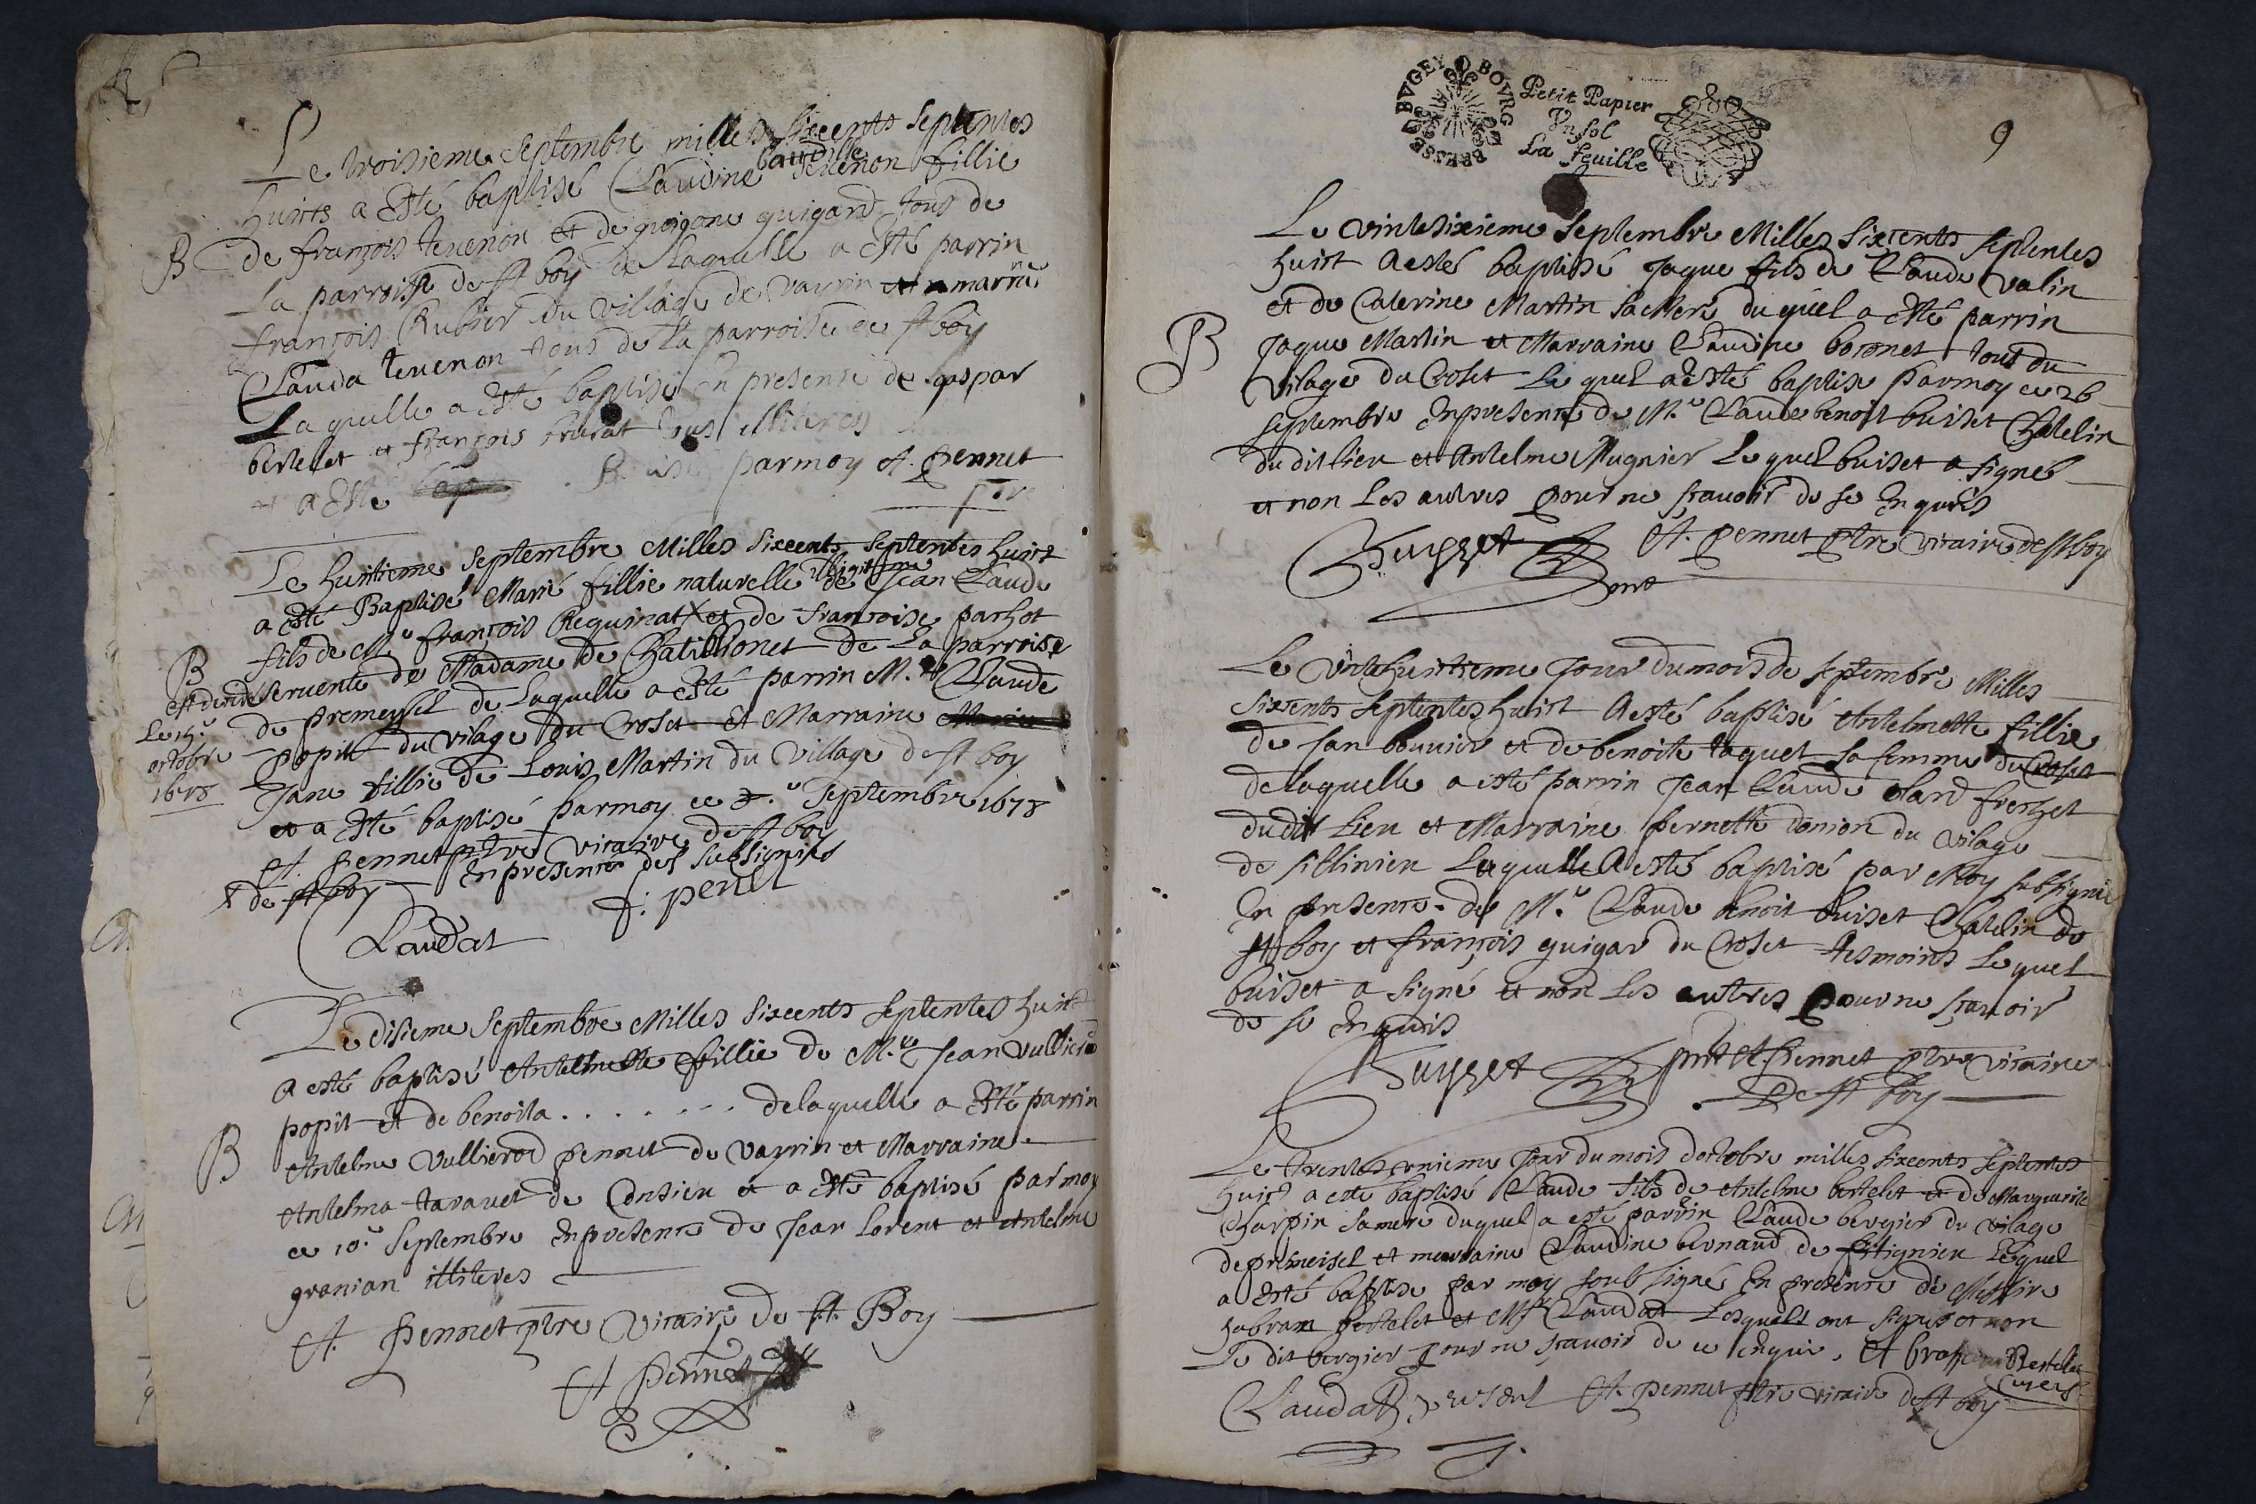 Le troisieme septembre milles sixcents septentes
huicts a esté baptisé Claudine tevenon fillie
baudille
B
de françois tevenon et de guigard tous de
la parroisse de st boy de laquelle a esté parrin
françois Rubier du village de vayrin et marrine
Clauda tevenon tous de la parroise de st boy
Laquelle a esté baptisé en presence de gaspar
bertelet et françois brusat tous illiteres
a esté parmoy A. pennet
Le huittieme septembre Milles sixcents septentes huict
a esté Baptisé Marié fillie naturelle illegitime de Jean Claude
fils de Me françois Requinat x et de francoise parhot
B
servente de Madame de Chatillionet de La parroise
est decede
Le 15e
octobre
1678
de premeysel de Laquelle a esté parrin M.re Claude
popitt du vilage du Croset et Marraine
Jane fillie de Louis Martin du village de st boy
et a esté baptisé parmoy ce 8.e septembre 1678
A. pennet ptre vicaire de st boy
en presence des subsignés
x de st boy
J: penet
Claudat
Le disieme septembre Milles sixcents septentes huict
a esté baptisé Antelmetta fillie de M.re Jean Vullierod
popit et de benoita . . . . . . . . delaquelle a esté parrin
B
Antelme Vullierod pennet de Vayrin et Marraine
Antelma taravet de Consieu et a esté baptisé par moy
ce 10.e septembre en presence de Jean Lorent et Antelme
granian illiteres
A. pennet ptre Vicaire de st. Boy
A pennet
BRESSE BVGEY BOVRG
Petit Papier
Vn sol
La feuille
9
Le vintesixieme septembre Milles sixcents septentes
huict a esté baptisé Jaque fils de Claude Valin
et de Caterine Martin sa mere duquel a esté parrin
B
Jaque Martin et Marraine Claudine boronet tout du
vilage du Croset Le quel a esté baptise parmoy ce 26
septembre en presence de M.e Claude benoist buiset Chatelin
du dit lieu et Antelme Mugnier Lequel buiset a signé
et non Les autres pour ne sçavoir de se enquis
Buysset pnt
A. pennet ptre vicaire de st boy
Le vintehuittieme jour du mois de septembre Milles
sixcents septentes huict a esté baptisé Antelmette fillie
de Jan bouvier et de benoite taquet sa femme du Croset
de laquelle a esté parrin Jean Claude olard frerhet
du dit Lieu et Marraine pernette tonion du vilage
de sillinieu Laquelle a esté baptisé par Moy subsigné
en presence de M.e Claude benoit buiset Chatelin de
st boy et françois guigar du Croset tesmoins Lequel
buiset a signé et non Les autres pour ne sçavoir
de se enquis
Buysset pnt A. pennet ptre vicaire
De st boy
Le trentesunieme jour du mois doctobre milles sixcents septentes
huict a esté baptisé Claude fils de Antelme bertelet et de Marguerite
Charpin sa mere duquel a esté parrin Claude bergier du vilage
de premeisel et mearaine Claudine bernaud de sitignieu Lequel
a esté baptise par moy soub signé en presence de Messire
habram bertelet et Mr Claudat Lesquels ont signés et non
Le dit bergier pour ne sçavoir de ce enquis. A
Bertelet
Claudat A. pennet ptre vicaire de st boy